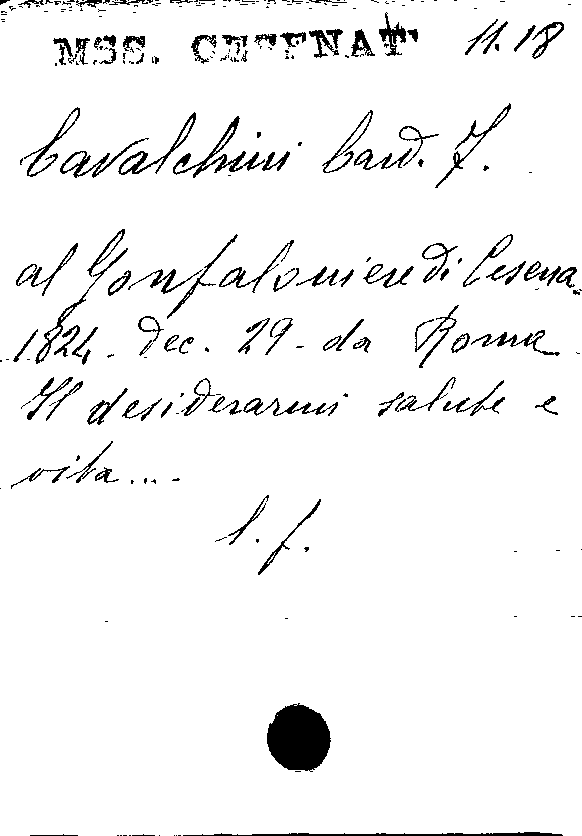 MSS. CESENAT. 11.18
Cavalchini Card. F.
al Gonfaloniere di Cesena
1824. dec. 29 - da Roma
Il desiderarmi salute e
vita....
l. f.